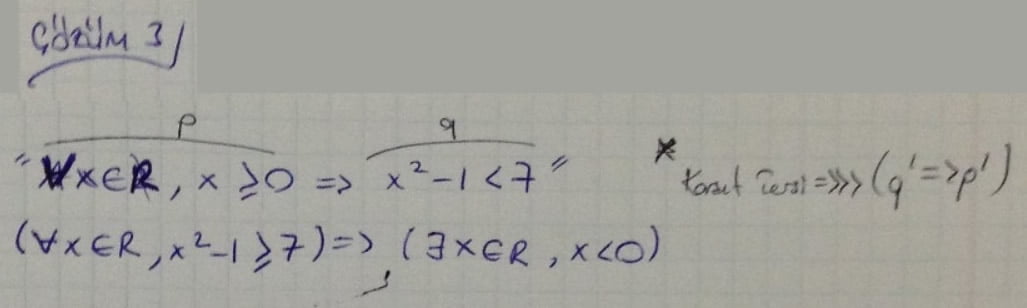 Çözüm 3/
p q
"∀x∈R, x ≥ 0 => x²-1 < 7" * Karşıt Tersi =>>> (q' => p')
(∀x∈R, x²-1 ≥ 7) => (∃x∈R, x<0)